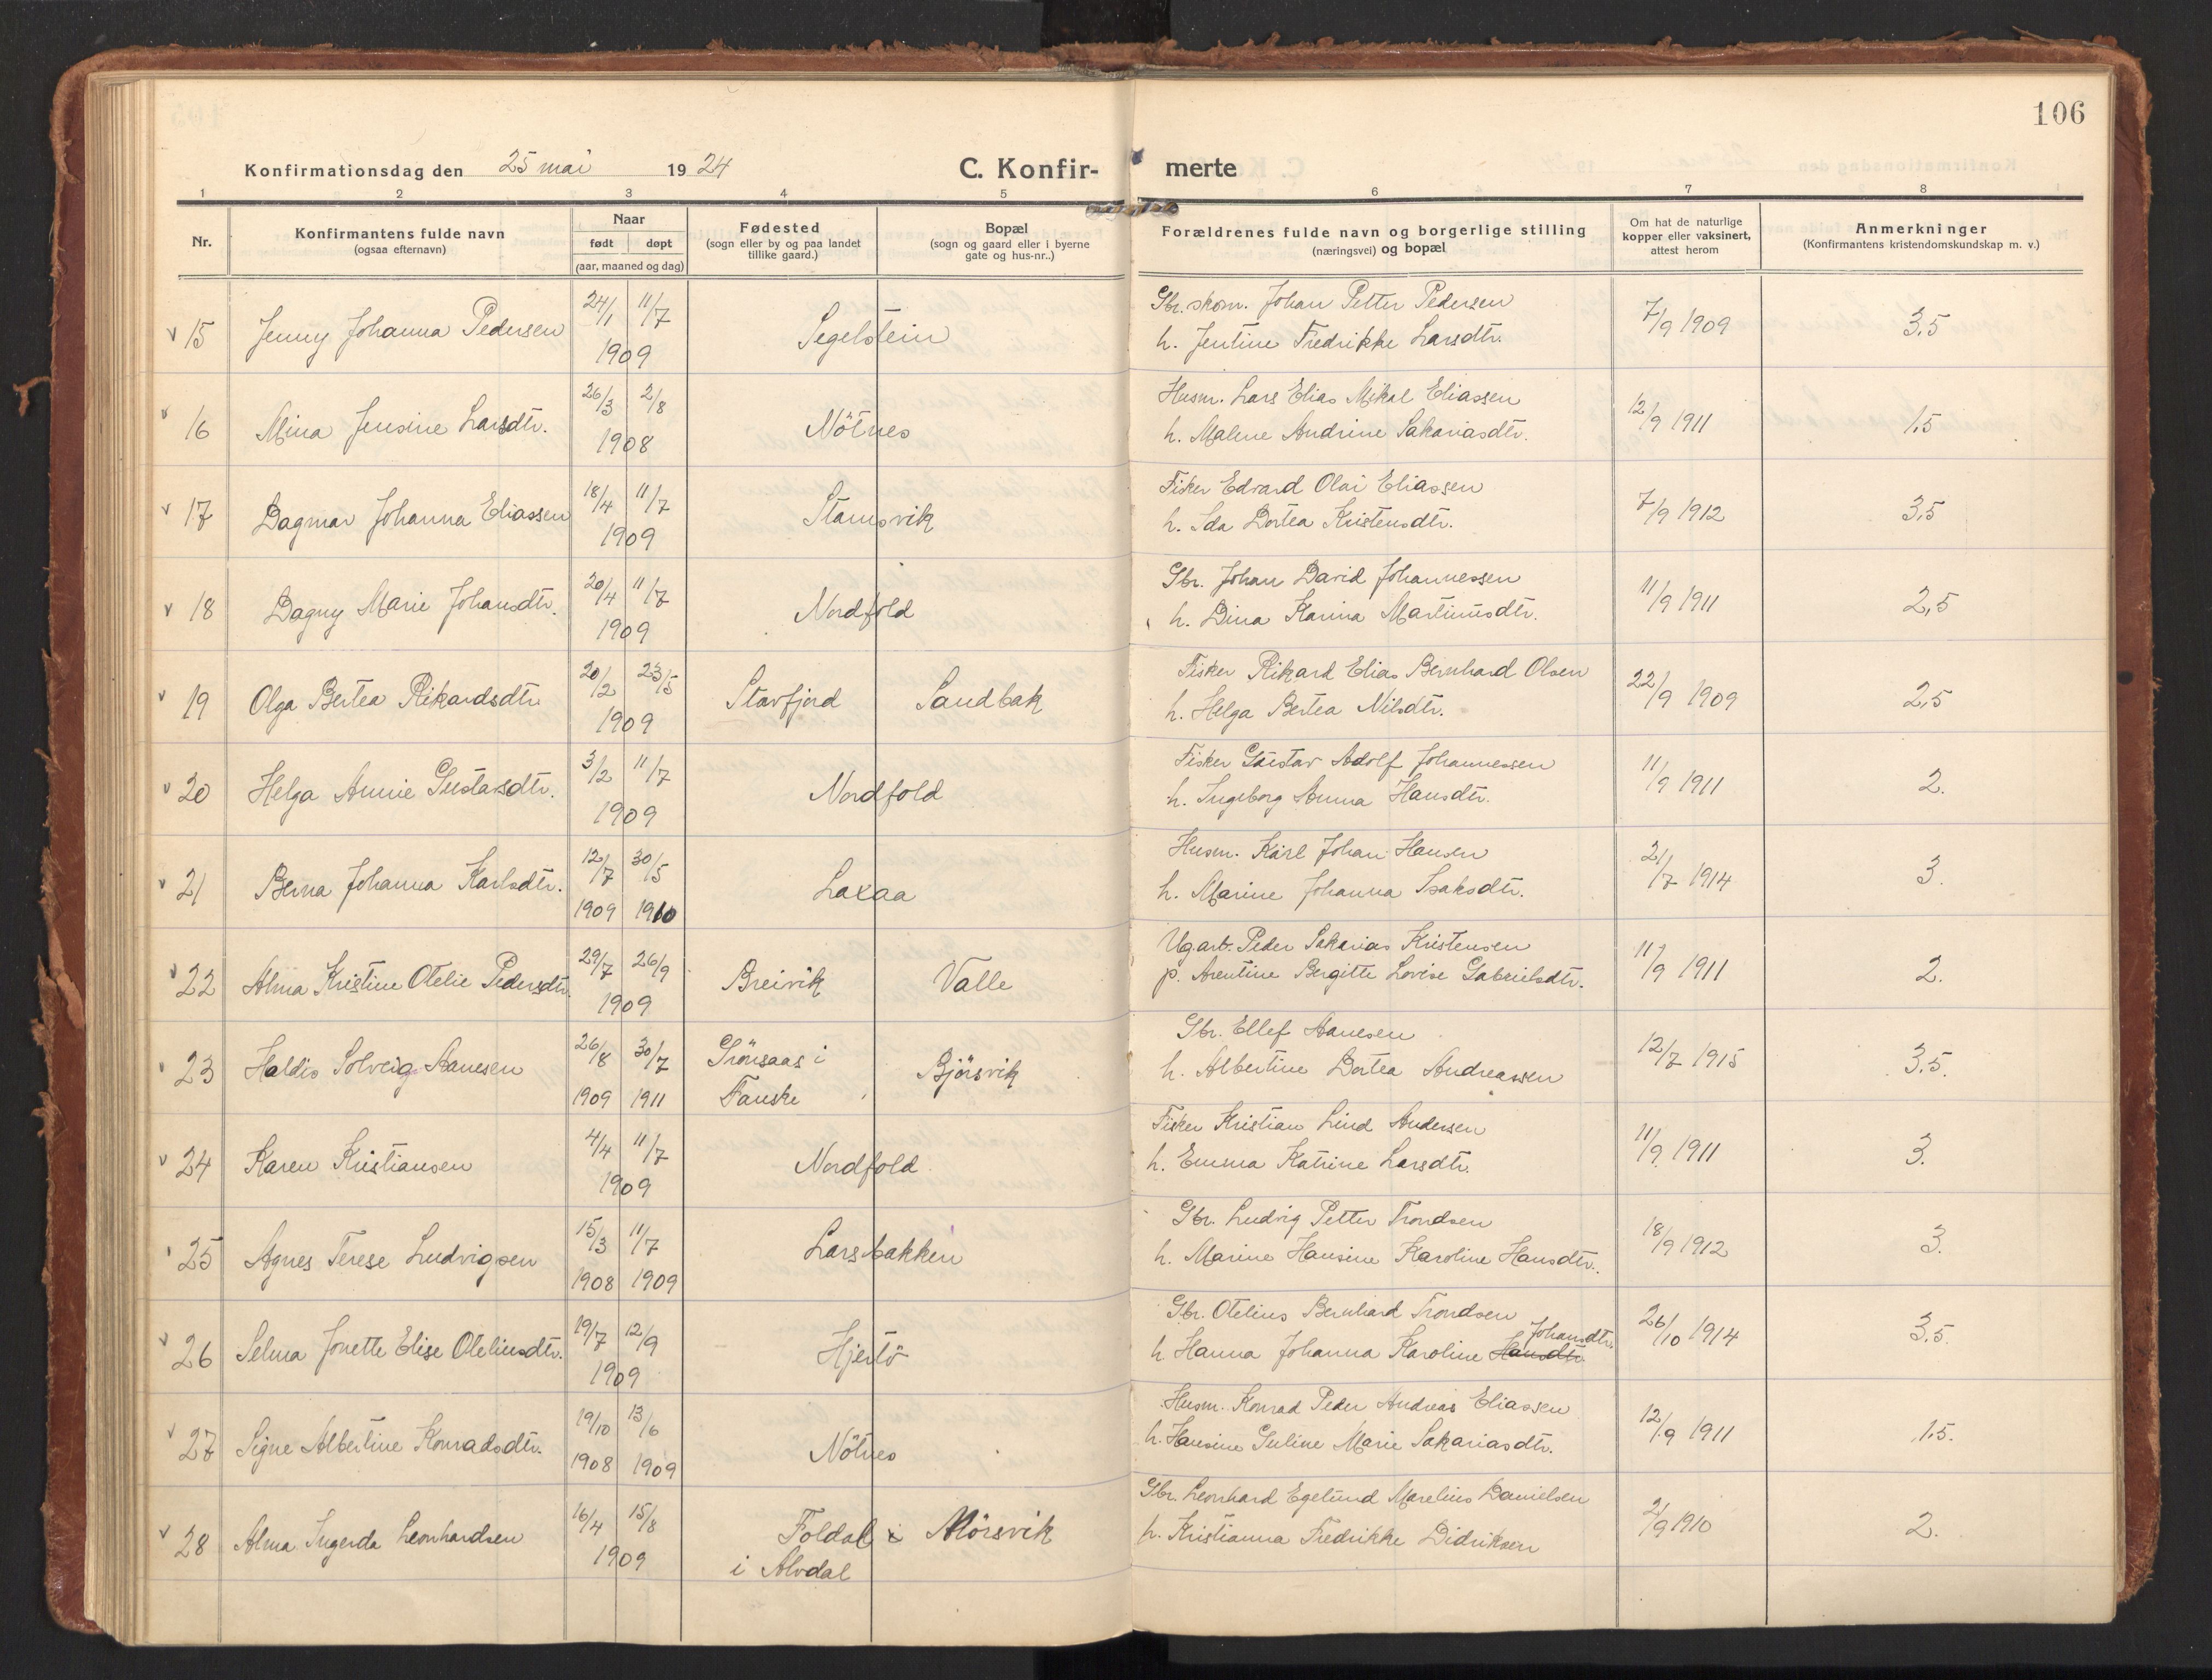 106
Konfirmationsdag den 25 mai 1924
C. Konfir-
merte
1 2 3 4 5 6 7 8
Nr.
Konfirmantens fulde navn
(ogsaa efternavn)
Naar
født døpt
(aar, maaned og dag)
Fødested
(sogn eller by og paa landet
tillike gaard.)
Bopæl
(sogn og gaard eller i byerne
gate og hus-nr..)
Forældrenes fulde navn og borgerlige stilling
(næringsvei) og bopæl
Om hat de naturlige
kopper eller vaksinert,
attest herom
Anmerkninger
(Konfirmantens kristendomskundskap m. v.)
v 15 Jenny Johanna Pedersen 24/1 11/7 1909 Segelstein
Gbr. skom. Johan Petter Pedersen
h. Jentine Fredrikke Larsdtr. 7/9 1909 3,5
v 16 Mina Jensine Larsdtr. 26/3 2/8 1908 Nötnes
Husm. Lars Elias Mikal Eliassen
h. Malene Andrine Sakariasdtr. 12/9 1911 1,5
v 17 Dagmar Johanna Eliassen 18/4 11/7 1909 Stamsvik
Fisker Edvard Olai Eliassen
h. Ida Dortea Kristensdtr. 7/9 1912 3,5
v 18 Dagny Marie Johansdtr. 20/4 11/7 1909 Nordfold
Gbr. Johan David Johannessen
h. Dina Karina Martinusdtr. 11/9 1911 2,5
v 19 Olga Bertea Rikardsdtr. 20/2 23/5 1909 Stavfjord Sandbak
Fisker Rikard Elias Bernhard Olsen
h. Helga Bertea Nilsdtr. 22/9 1909 2,5
v 20 Helga Annie Gustavsdtr. 3/2 11/7 1909 Nordfold
Fisker Gustav Adolf Johannessen
h. Ingeborg Anna Hansdtr. 11/9 1911 2.
v 21 Berna Johanna Karlsdtr. 12/7 30/5 1909 1910 Laxaa
Husm. Karl Johan Hansen
h. Marine Johanna Isaksdtr. 21/7 1914 3.
v 22 Alma Kristine Otelie Pedersdtr. 29/7 26/9 1909 Breivik Valle
Ug.arb. Peder Sakarias Kristensen
p. Arentine Bergitte Lovise Gabrielsdtr. 11/9 1911 2.
v 23 Haldis Solveig Aanesen 26/8 30/7 1909 1911 Grönsaas i
Fauske Bjørsvik
Gbr. Ellef Aanesen
h. Albertine Dortea Andreassen 12/7 1915 3,5.
v 24 Karen Kristiansen 4/4 11/7 1909 Nordfold
Fisker Kristian Lind Andersen
h. Emma Katrine Larsdtr. 11/9 1911 3.
v 25 Agnes Terese Ludvigsen 15/3 11/7 1908 1909 Larsbakken
Gbr. Ludvig Petter Trondsen
h. Marine Hansine Karoline Hansdtr. 18/9 1912 3.
v 26 Selma Jonette Elise Oteliusdtr. 19/7 12/9 1909 Hjertö
Gbr. Otelius Bernhard Trondsen
h Hanna Johanna Karoline Hansdtr. Johansdtr. 26/10 1914 3.5.
v 27 Signe Albertine Konradsdtr. 19/10 13/6 1908 1909 Nötnes
Husm. Konrad Peder Andreas Eliassen
h. Hansine Guline Marie Sakariasdtr. 12/9 1911 1.5.
v 28 Alma Ingerda Leonhardsen 16/4 15/8 1909 Foldal i Mörsvik
i Alvdal
Gbr. Leonhard Egelund Marelius Danielsen
h. Kristianna Fredrikke Didriksen 2/9 1910 2.